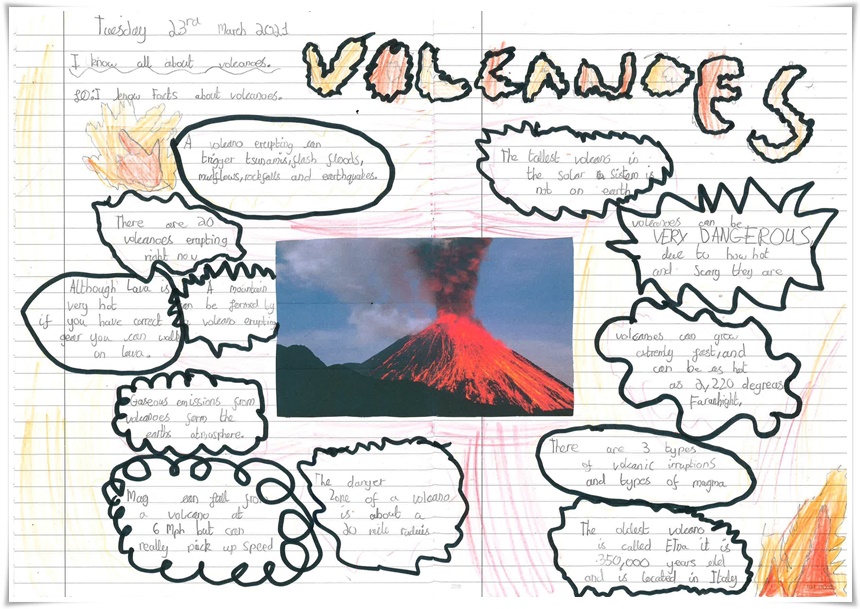 Tuesday 23rd March 2021
I know all about volcanoes.
LO: I know Facts about volcanoes.
VOLCANOES
A volcano erupting can
trigger tsunamis, flash floods,
mudflows, rockfalls and earthquakes.
The tallest volcano in
the solar sistem is
not on earth
There are 20
volcanoes erupting
right now
volcanoes can be
VERY DANGEROUS
due to how hot
and scary they are
Although Lava is
very hot
if you have correct
gear you can walk
on lava.
A mountain
can be formed by
a volcano erupting
volcanoes can grow
extremly fast, and
can be as hot
as 2,220 degreas
Faranhight.
Gaseous emissions from
volcanoes form the
earths atmosphere.
There are 3 types
of volcanic irruptions
and types of magma
Mag can fall from
a volcano at
6 Mph but can
really pick up speed
The danger
Zone of a volcano
is about a
20 mile radius
The oldest volcano
is called ETna it is
350,000 years old
and is located in Italy